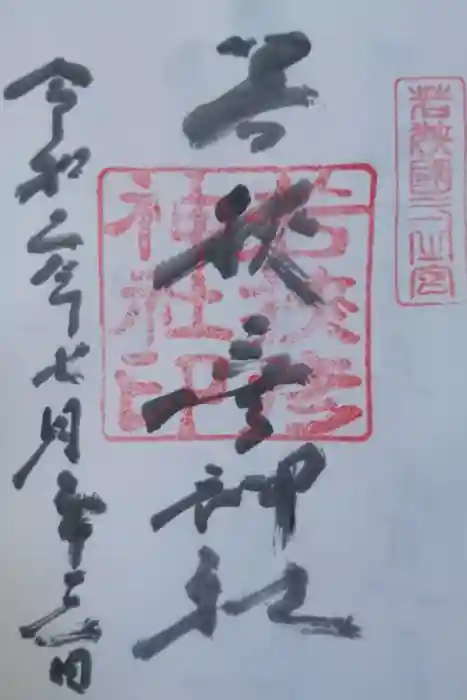 若狹國一之宮
若狭彦神社
若狭彦
神社印
令和二年七月廿三日